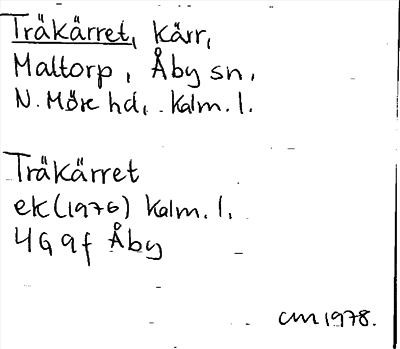 Träkärret, kärr,
Maltorp, Åby sn,
N. Möre hd, Kalm. l.
Träkärret
ek (1976) Kalm. l.
4G 9f Åby
CM 1978.